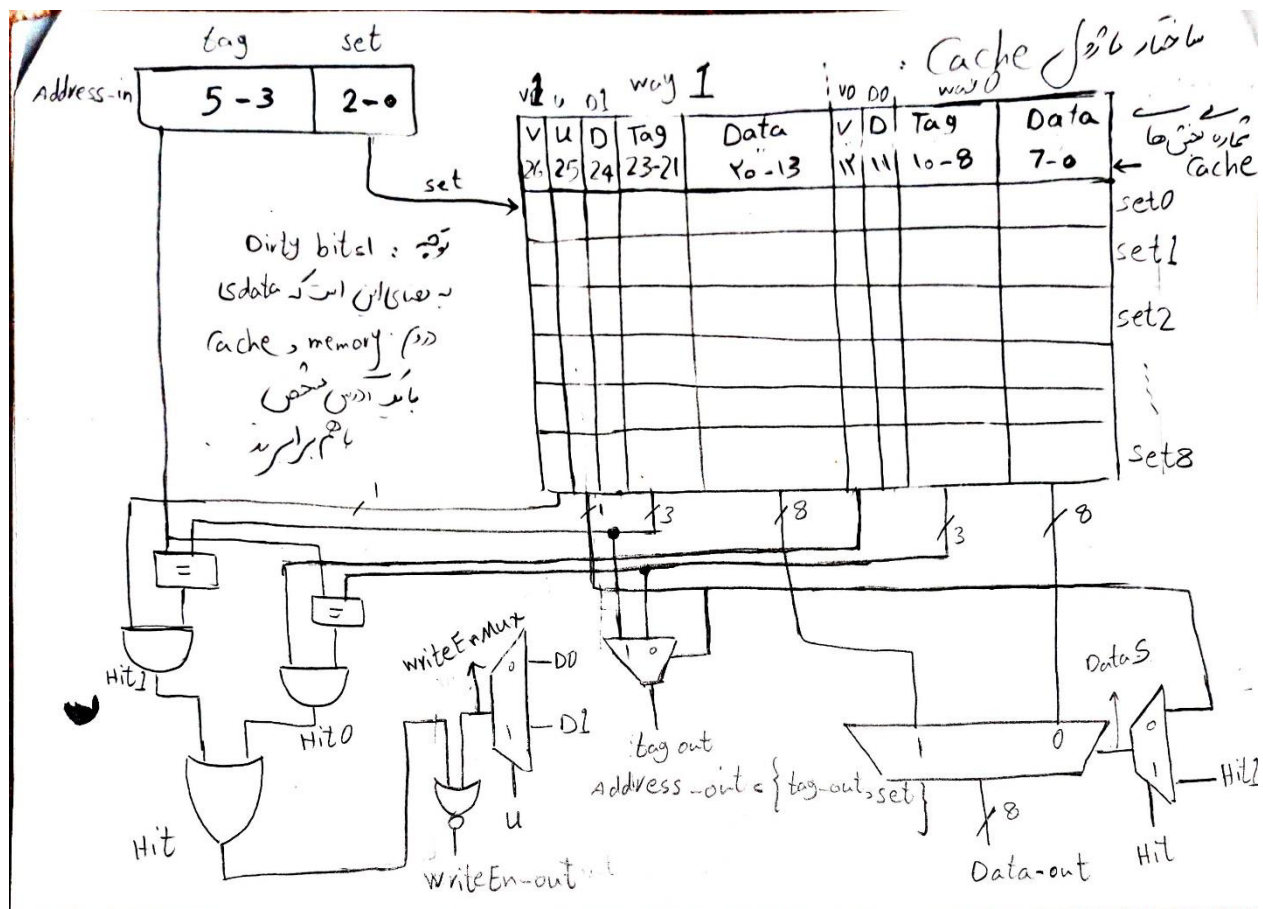 ساختار ماژول Cache :
tag set
Address-in 5-3 2-0
V1 U D1 way 1 V0 D0 way 0
V U D Tag Data V D Tag Data
26 25 24 23-21 ۲۰-13 ۱۲ ۱۱ ۱۰-8 7-0
شماره بخش های
Cache
set
set0
set1
set2
set8
توجه : Dirty bit=1
به معنای این است که data ی
در memory و cache
با یک آدرس مشخص
با هم برابرند .
1
1 3 8 3 8
=
=
Hit1
Hit0
Hit
writeEnMux
0 D0
1 D1
U
WriteEn-out
1 0
tag out
Address-out = {tag-out, set}
1 0
8
Data-out
DataS
0
1 Hit1
Hit